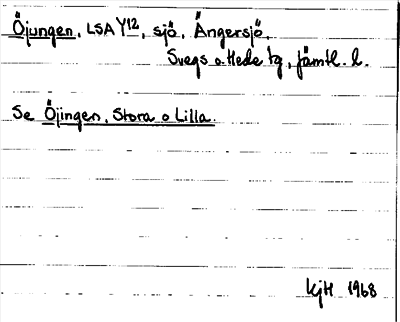 Öjungen, LSA Y12, sjö, Ängersjö,
Svegs o. Hede tg, Jämtl. l.
Se Öjingen, Stora o Lilla.
KjH 1968